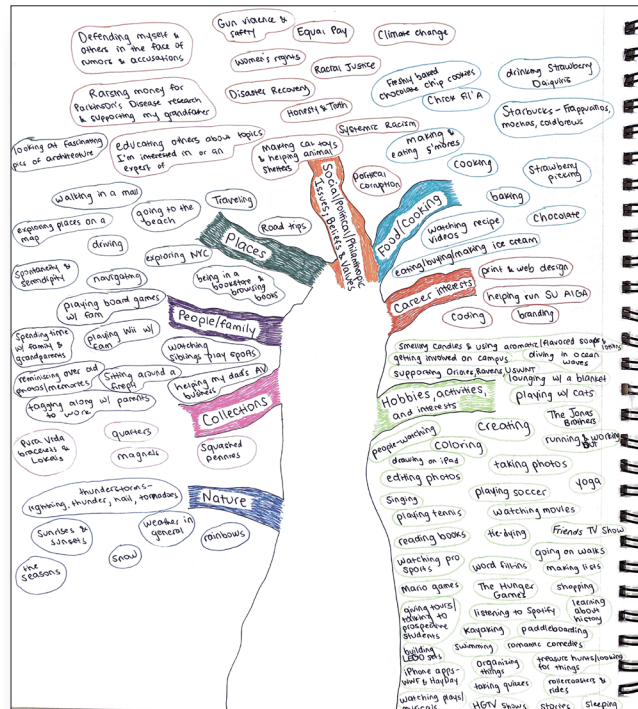 Defending myself &
others in the face of
rumors & accusations
Gun violence &
safety
Equal Pay
Climate change
Women's rights
Racial Justice
Raising money for
Parkinson's Disease research
& supporting my grandfather
Disaster Recovery
Honesty & Truth
Systemic Racism
looking at fascinating
pics of architecture
educating others about topics
I'm interested in or an
expert of
making cat toys
& helping animal
shelters
political
corruption
Social/Political/Philanthropic
Issues, Beliefs & Values
Freshly baked
chocolate chip cookies
drinking Strawberry
Daiquiris
Chick Fil'A
Starbucks - frappuccinos,
mochas, coldbrews
making &
eating s'mores
cooking
Strawberry
picking
baking
chocolate
watching recipe
videos
eating/buying/making ice cream
Food/Cooking
walking in a mall
going to the
beach
Traveling
Road trips
exploring places on a
map
driving
exploring NYC
Places
spontaneity &
serendipity
navigating
being in a
bookstore &
browsing
books
Career interests
print & web design
helping run SU AIGA
coding
branding
playing board games
w/ fam
People/family
Spending time
w/ family &
grandparents
playing Wii w/
fam
watching
siblings play sports
reminiscing over old
photos/memories
Sitting around a
firepit
helping my dad's AV
business
tagging along w/ parents
to work
Collections
Pura Vida
bracelets &
Lokais
quarters
magnets
Squashed
pennies
Nature
thunderstorms-
lightning, thunder, hail, tornadoes
Sunrises &
sunsets
weather in
general
rainbows
the
seasons
snow
smelling candles & using aromatic/flavored soaps &
lotions
getting involved on campus
diving in ocean
waves
supporting Orioles, Ravens, USWNT
lounging w/ a blanket
Hobbies, activities,
and interests
playing w/ cats
people-watching
creating
The Jonas
Brothers
Coloring
running & working
out
drawing on iPad
taking photos
editing photos
yoga
singing
playing soccer
playing tennis
watching movies
reading books
tie-dying
Friends TV Show
watching pro
sports
word fill-ins
going on walks
making lists
Mario games
The Hunger
Games
shopping
giving tours/
talking to
prospective
students
listening to Spotify
learning
about
history
kayaking
paddleboarding
building
LEGO sets
swimming
romantic comedies
iPhone apps-
WWF & HayDay
organizing
things
treasure hunts/looking
for things
taking quizzes
rollercoasters &
rides
watching plays/
musicals
HGTV shows
stories
sleeping